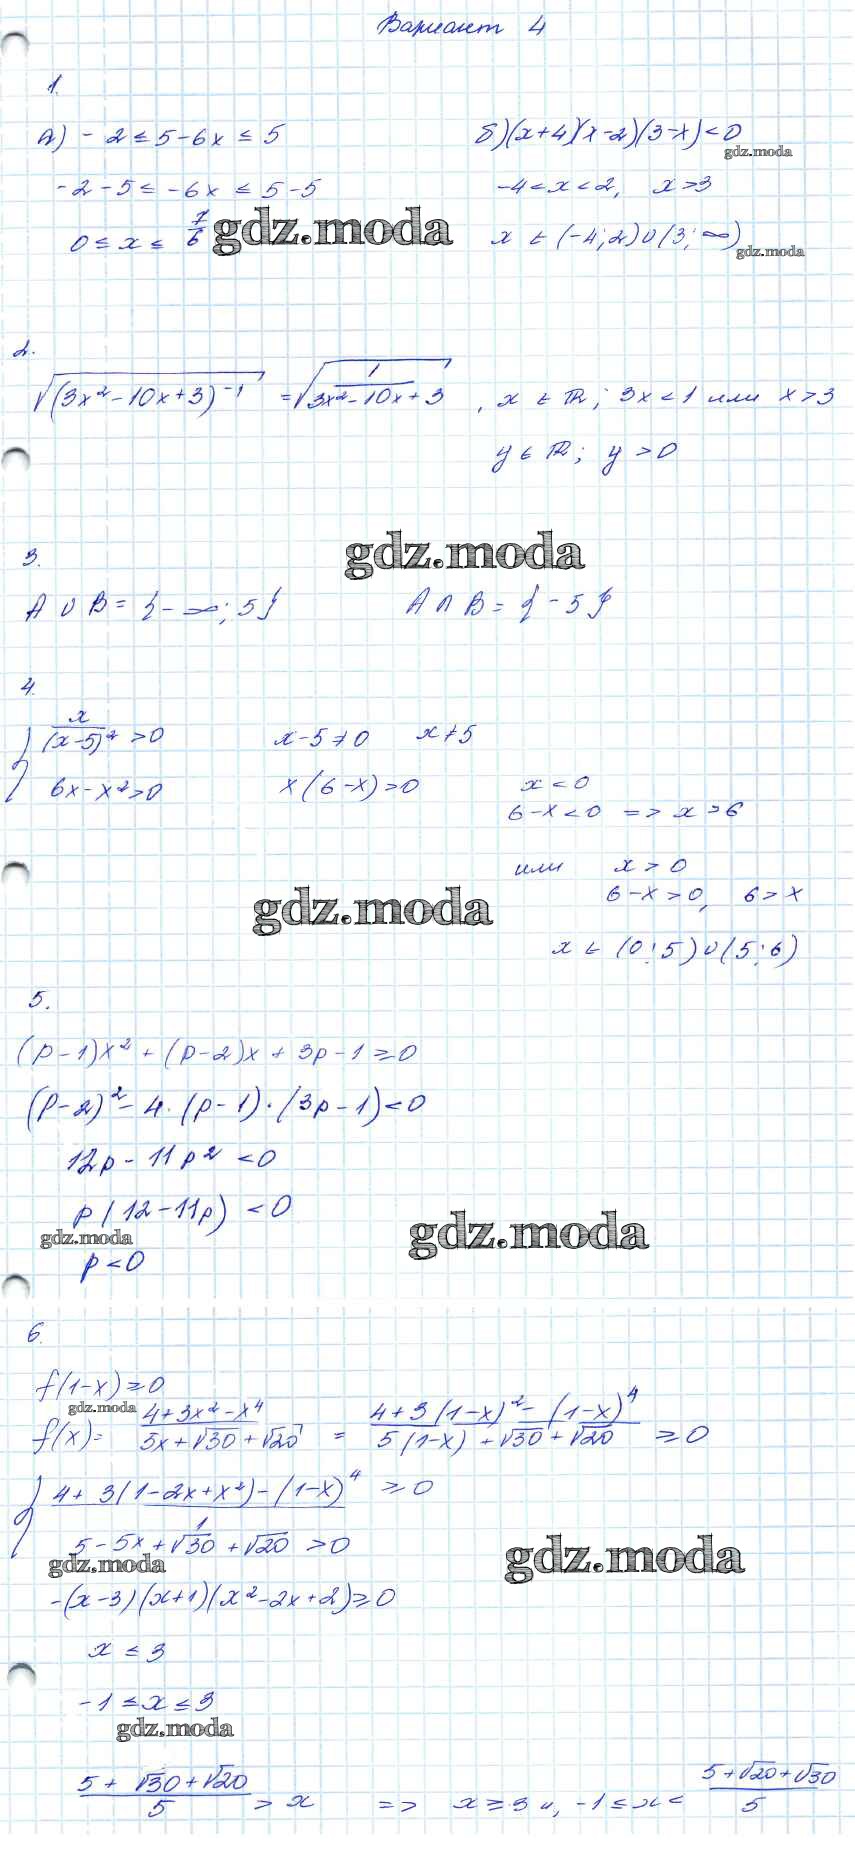 Вариант 4
1.
а) -2 ≤ 5-6x ≤ 5
-2-5 ≤ -6x ≤ 5-5
0 ≤ x ≤ 7/6
б) (x+4)(x-2)(3-x) < 0
gdz.moda
-4 < x < 2, x > 3
x ∈ (-4; 2) ∪ (3; ∞)
gdz.moda
gdz.moda
2.
√((3x²-10x+3)⁻¹) = √(1/(3x²-10x+3)), x ∈ ℝ; 3x < 1 или x > 3
y ∈ ℝ; y > 0
gdz.moda
3.
A ∪ B = {-∞; 5} A ∩ B = {-5}
4.
{ x/(x-5)² > 0 x-5 ≠ 0 x ≠ 5
6x-x² > 0 x(6-x) > 0 x < 0
6-x < 0 => x > 6
или x > 0
6-x > 0, 6 > x
gdz.moda
x ∈ (0; 5) ∪ (5; 6)
5.
(p-1)x² + (p-2)x + 3p-1 ≥ 0
(p-2)² - 4·(p-1)·(3p-1) < 0
12p - 11p² < 0
p(12-11p) < 0
gdz.moda
gdz.moda
p < 0
6.
f(1-x) ≥ 0
gdz.moda
f(x) = (4+3x²-x⁴)/(5x+√30+√20) = (4+3(1-x)²-(1-x)⁴)/(5(1-x)+√30+√20) ≥ 0
{ 4+3(1-2x+x²)-(1-x)⁴ ≥ 0
1
5-5x+√30+√20 > 0
gdz.moda
gdz.moda
-(x-3)(x+1)(x²-2x+2) ≥ 0
x ≤ 3
-1 ≤ x ≤ 3
gdz.moda
(5+√30+√20)/5 > x => x ≥ 3 и, -1 ≤ x < (5+√20+√30)/5